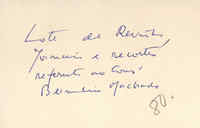 Lote de Revistas
Jornais e recortes
referente ao Cons.
Bernardino Machado
80.